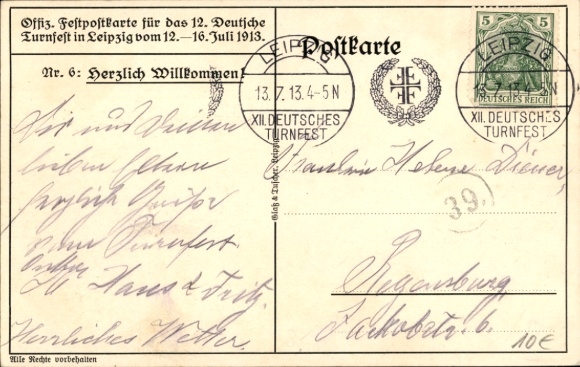 Offiz. Festpostkarte für das 12. Deutsche
Turnfest in Leipzig vom 12.—16. Juli 1913.
Nr. 6: Herzlich Willkommen!
Postkarte
LEIPZIG
13.7.13.4-5N
XII.DEUTSCHES
TURNFEST
5 5
DEUTSCHES REICH
LEIPZIG
13.7.13.4-5N
XII.DEUTSCHES
TURNFEST
Dir und Deinen
lieben
Grüße
vom Turnfest
Hans & Fritz
Herrliches Wetter
Fräulein Helene Diener,
39.
Regensburg,
Jackobstr. 6.
10€
Glaß & Tuscher, Leipzig
Alle Rechte vorbehalten